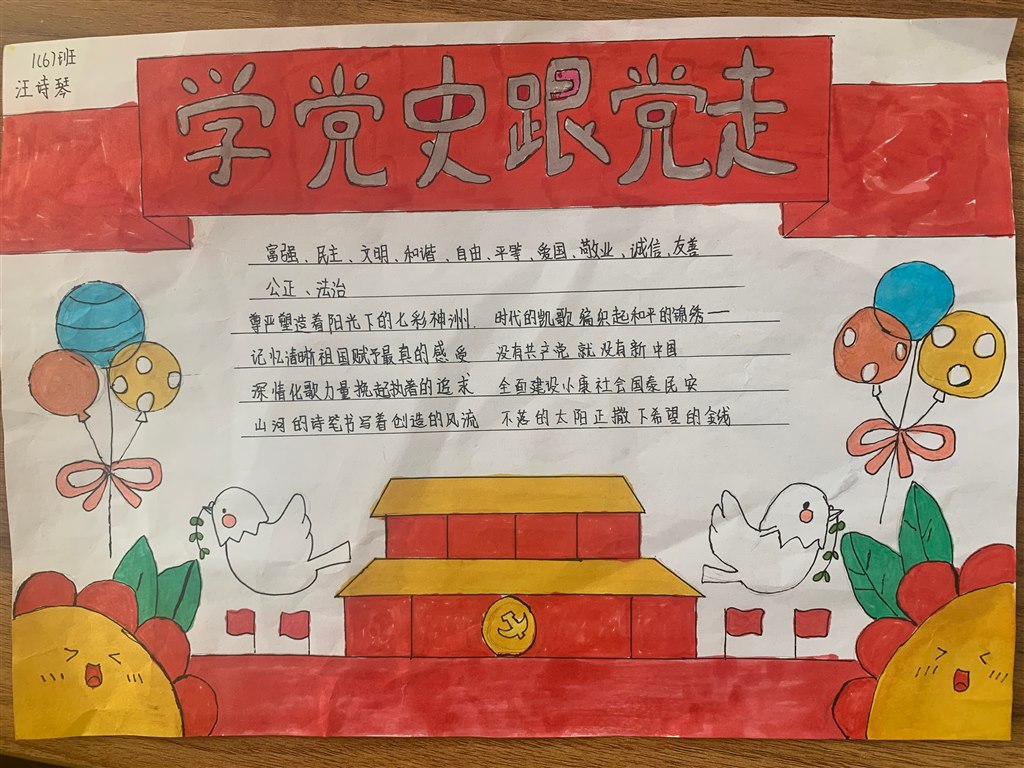 1(6)班
汪诗琴
学党史跟党走
富强、民主、文明、和谐、自由、平等、爱国、敬业、诚信、友善
公正、法治
尊严塑造着阳光下的七彩神洲. 时代的凯歌编织起和平的锦绣一
记忆清晰祖国赋予最真的感受 没有共产党就没有新中国
深情化歌力量挽起执着的追求 全面建设小康社会国泰民安
山河的诗笔书写着创造的风流 不落的太阳正撒下希望的金线